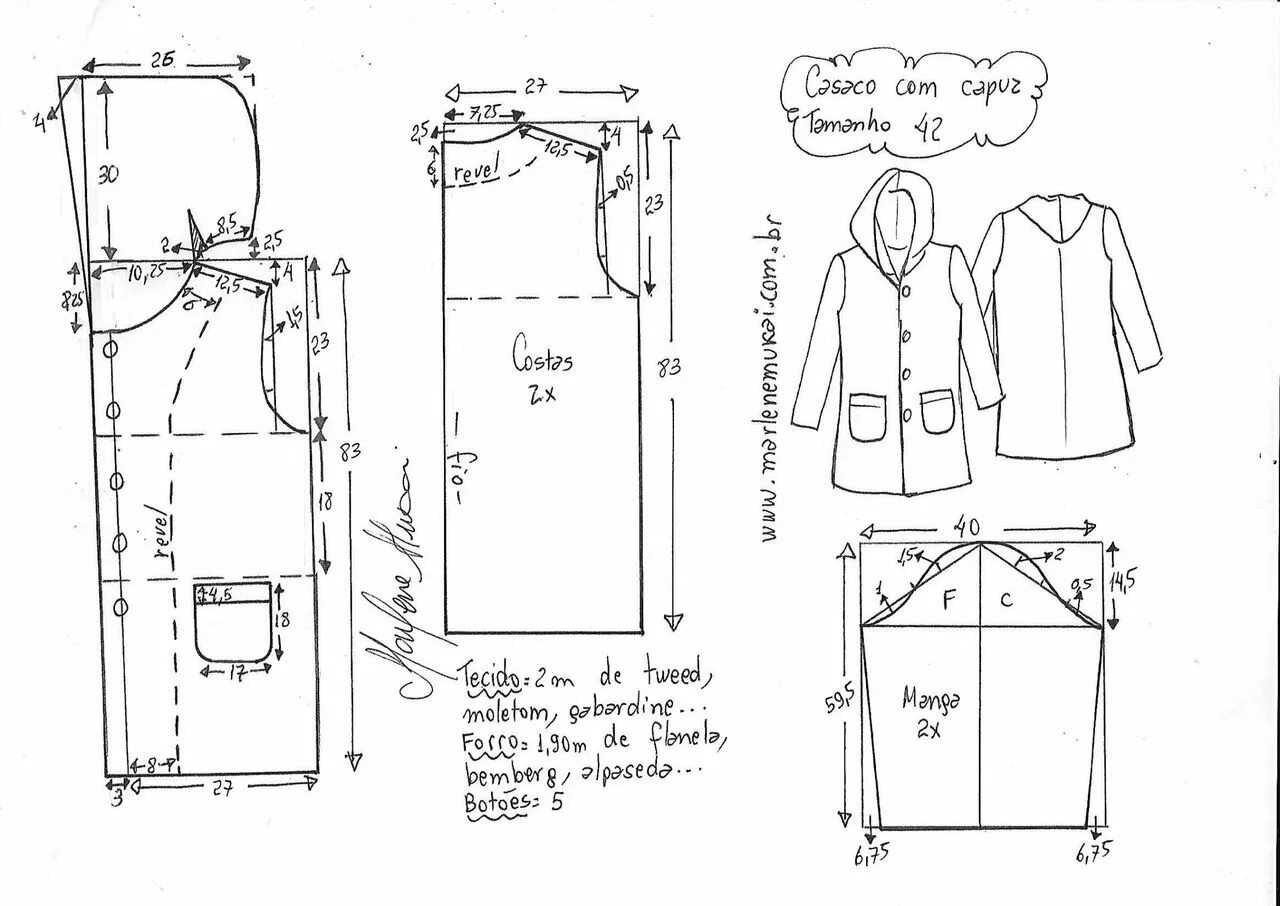 Casaco com capuz
Tamanho 42
www.marlenemukai.com.br
26
4
30
8,5
2
2,5
10,25
8,25
12,5
4
6
1,5
23
83
18
revel
4,5
18
17
8
3
27
Marlene Mukai
27
7,25
2,5
4
12,5
6
revel
0,5
23
83
Costas
2x
fio
Tecido= 2m de tweed,
moletom, gabardine...
Forro= 1,90m de flanela,
bemberg, alpaseda...
Botões= 5
40
1,5
2
1
F
C
0,5
14,5
59,5
Manga
2x
6,75
6,75